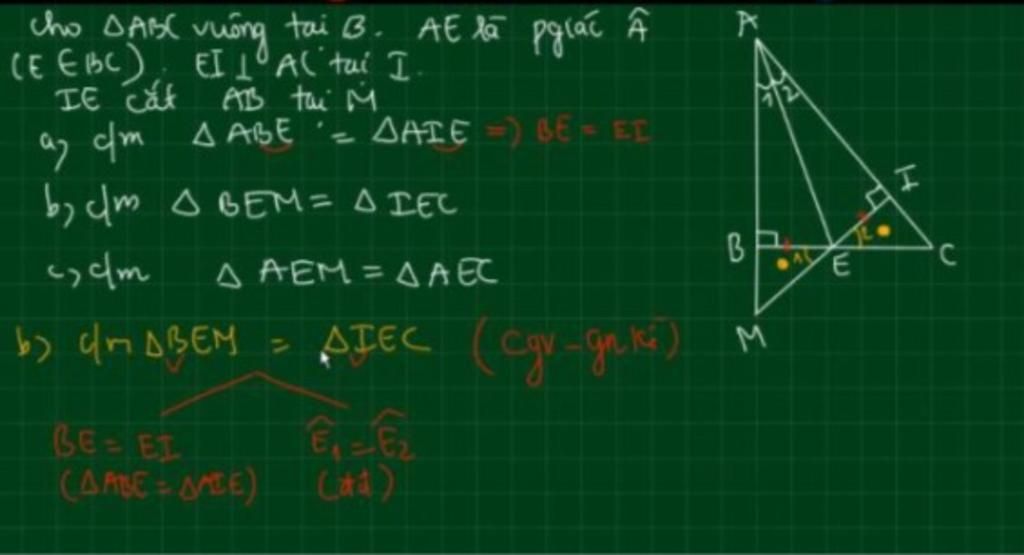 cho ΔABC vuông tại B. AE là pgiác Â
(E ∈ BC). EI ⊥ AC tại I.
IE cắt AB tại M
a, c/m Δ ABE = ΔAIE => BE = EI
b, c/m Δ BEM = Δ IEC
c, c/m Δ AEM = Δ AEC
b) c/m ΔBEM = ΔIEC (cgv - gn kề)
BE = EI Ê₁ = Ê₂
(ΔABE = ΔAIE) (đđ)
A
1 2
I
B 1 E 2 C
M